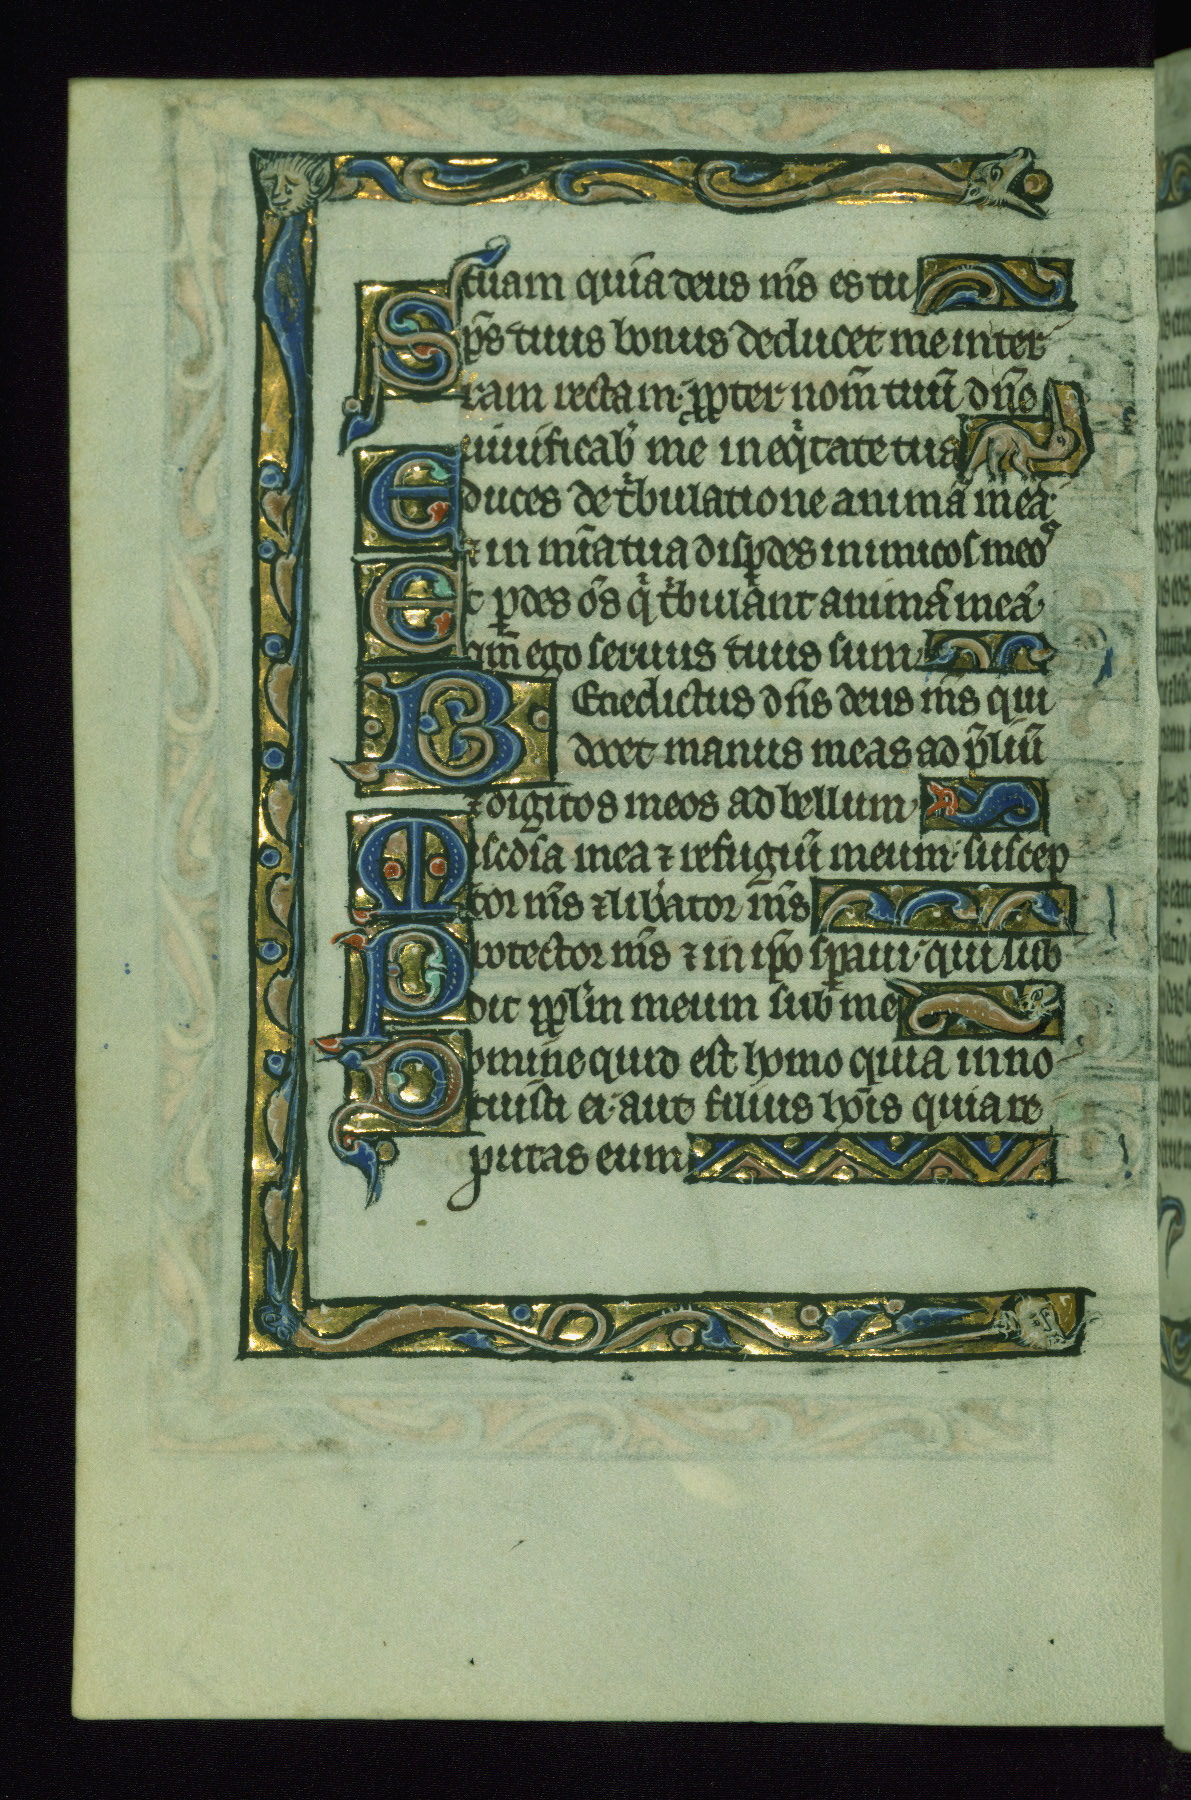 tuam quia deus nr̄s es tu
Sp̄s tuus bonus deducet me in ter
ram rectam· ꝓpter nom̄ tuū dn̄e
uiuificab' me in eq̇tate tua
Educes de t'bulatione animā meā·
⁊ in mīa tua disꝑdes inimicos meos
Et ꝑdes om̄s q' t'bulant animā meā·
qm̄ ego seruus tuus sum·
BEnedictus dn̄s deus m̄s qui
docet manus meas ad p̄liū
⁊ digitos meos ad bellum·
Misc̄dia mea ⁊ refugiū meum· suscep
tor m̄s ⁊ lib'ator m̄s
Protector m̄s ⁊ in ip̄o sꝑaui· qui sub
dit pp̄lm meum sub me
Domine quid est homo quia inno
tuisti ei· aut filius hōis quia re
putas eum